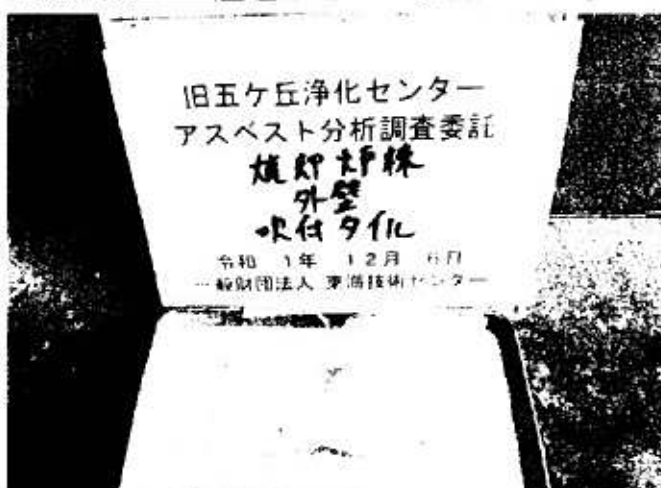 旧五ケ丘浄化センター
アスベスト分析調査委託
焼却炉棟
外壁
吹付タイル
令和 1年 12月 6日
一般財団法人 東海技術センター